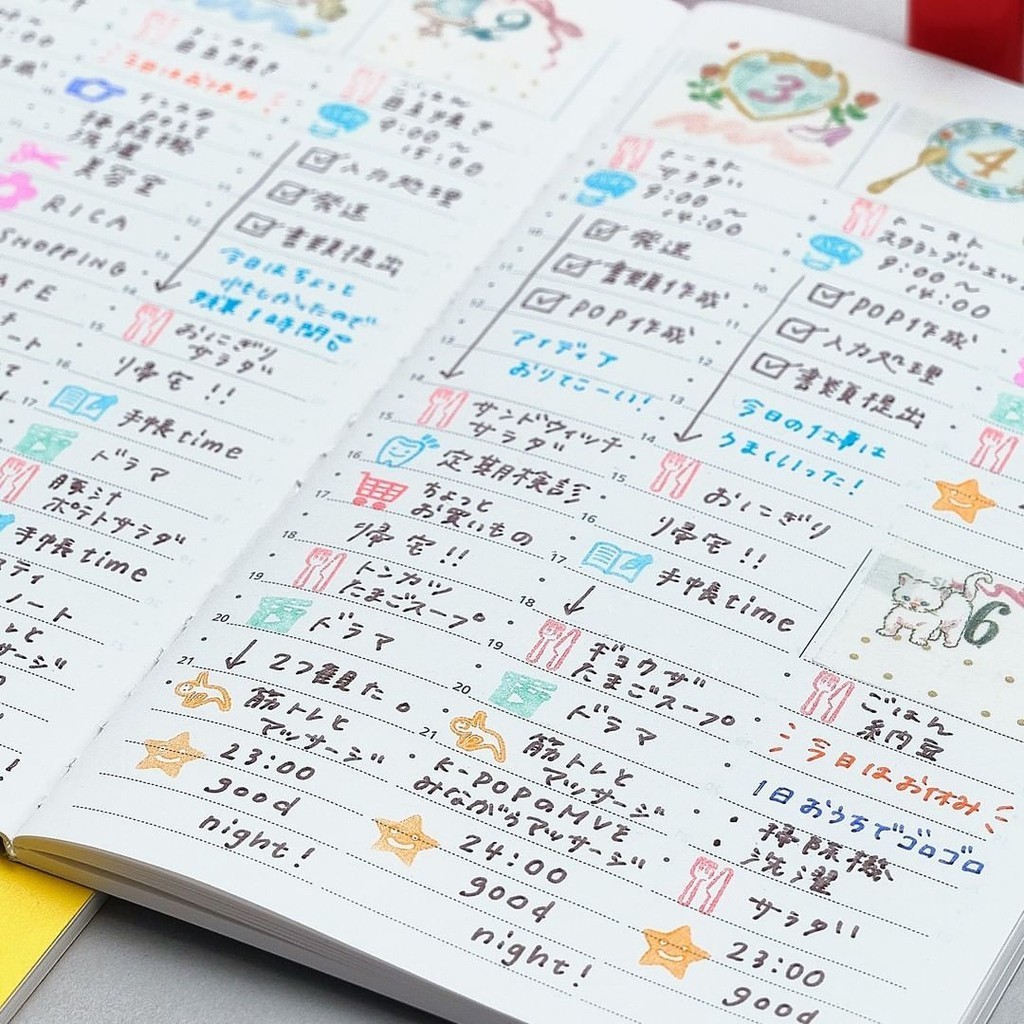 今日はお休み
インスタ
post
掃除機
洗濯
美容室
RICA
SHOPPING
CAFE
豚汁
ポテトサラダ
手帳time
ノート
9:00 〜
15:00
入力処理
発送
書類提出
今日はちょっと
忙しかったので
残業1時間
15
おにこぎり
サラダ
16
帰宅!!
17
手帳time
ドラマ
3
トースト
サラダ
バイト
9:00 〜
14:00
発送
書類作成
POP作成
アイディア
おりてこーい!
14
15
サンドウィッチ
サラダ
16
定期検診
17
ちょっと
お買いもの
18
帰宅!!
19
トンカツ
たまごスープ
20
ドラマ
21
2つ観た。
筋トレと
マッサージ
23:00
good
night!
4
トースト
スクランブルエッグ
バイト
9:00 〜
14:00
10
POP作成
11
入力処理
12
書類提出
13
今日の仕事は
うまくいった!
14
15
おにこぎり
16
帰宅!!
17
手帳time
18
19
ギョウザ
たまごスープ
20
ドラマ
21
筋トレと
マッサージ
K-POPのMVを
みながらマッサージ
24:00
good
night!
6
ごはん
納豆
今日はお休み
1日おうちでゴロゴロ
掃除機
洗濯
サラダ
23:00
good